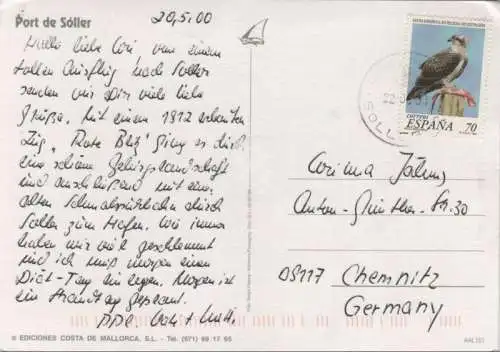 Port de Sóller
20.5.00
Hallo liebe Cori von einem
tollen Ausflug nach Soller
senden wir Dir viele liebe
Grüße. Mit einem 1912 erbauten
Zug, "Rote Blitz" ging es durch
eine schöne Gebirgslandschaft
und anschließend mit einer
alten Schmalspurbahn durch
Soller zum Hafen. Wie immer
haben wir viel geschlemmt
und ich muß morgen einen
Diät-Tag einlegen. Morgen ist
ein Strandtag geplant.
® EDICIONES COSTA DE MALLORCA, S.L. - Tel. (971) 69 17 65
CORREOS
ESPAÑA 70
SOLLER
Corinna
Anton-Günther-Str. 30
09117 Chemnitz
Germany